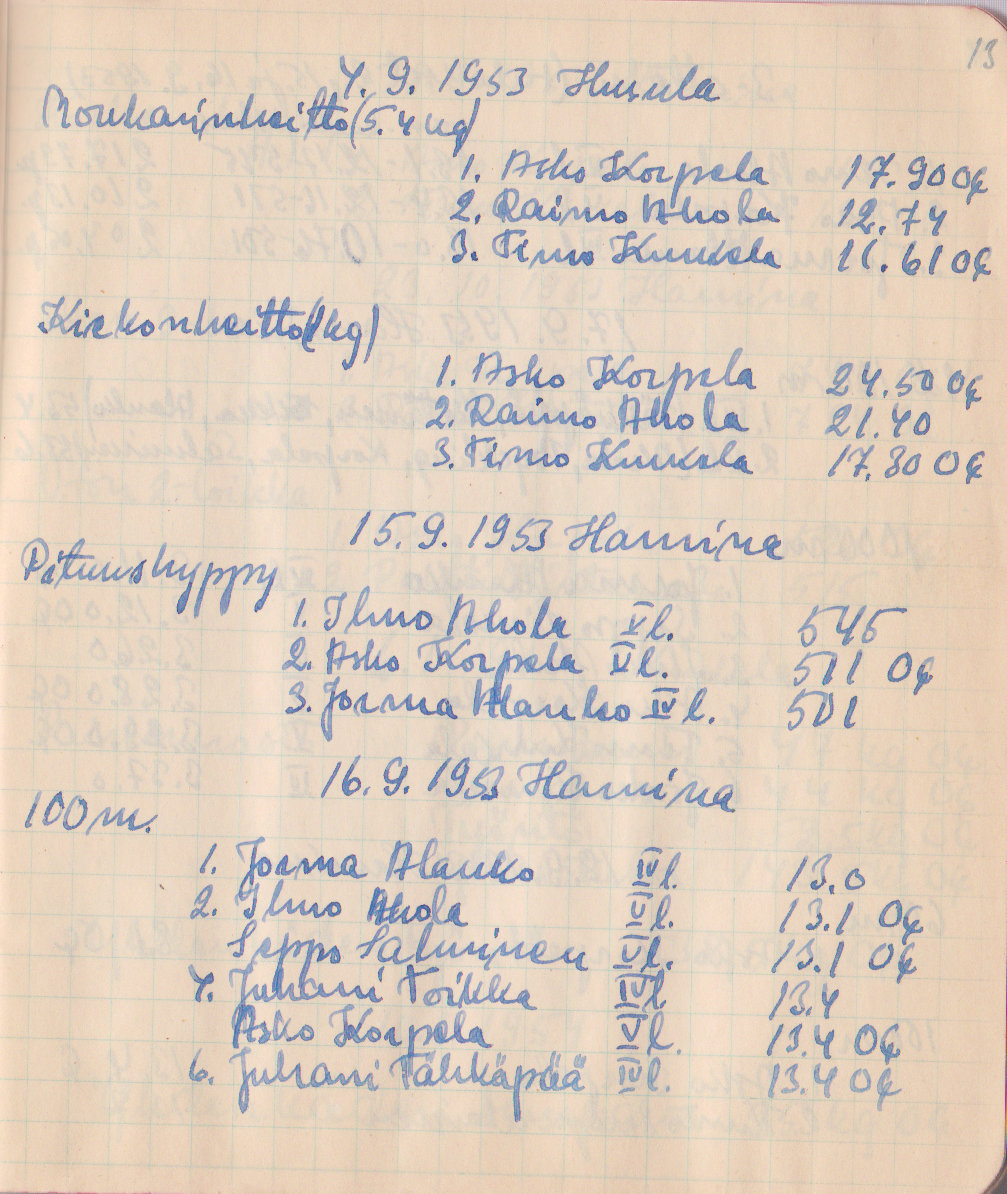 13
4. 9. 1953 Husula
Moukarinheitto (5.4 kg)
1. Asko Korpela 17.90 OE
2. Raimo Ahola 12.74
3. Timo Kunkola 11.61 OE
Kiekonheitto (1kg)
1. Asko Korpela 24.50 OE
2. Raimo Ahola 21.40
3. Timo Kunkola 17.30 OE
15. 9. 1953 Hamina
Pituushyppy
1. Ilmo Ahola V l. 545
2. Asko Korpela V l. 511 OE
3. Jorma Alanko IV l. 501
16. 9. 1953 Hamina
100 m.
1. Jorma Alanko IV l. 13.0
2. Ilmo Ahola V l. 13.1 OE
Seppo Salminen V l. 13.1 OE
4. Juhani Toikka IV l 13.4
Asko Korpela V l. 13.4 OE
6. Juhani Tähkäpää IV l. 13.4 OE